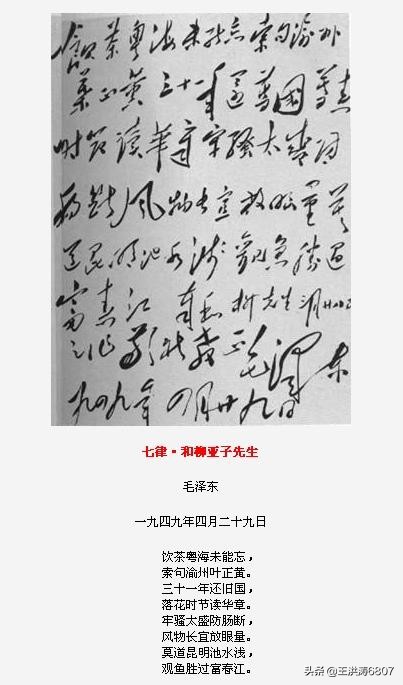 飲茶粤海未能忘索句渝州
葉正黄三十一年還舊國落花
时節读華章牢騷太盛防
腸斷風物长宜放眼量莫
道昆明池水浅觀魚勝过
富春江 奉和柳先生三月廿八日
之作敬祈教正 毛泽东
一九四九年四月廿九日
七律·和柳亚子先生
毛泽东
一九四九年四月二十九日
饮茶粤海未能忘，
索句渝州叶正黄。
三十一年还旧国，
落花时节读华章。
牢骚太盛防肠断，
风物长宜放眼量。
莫道昆明池水浅，
观鱼胜过富春江。
头条 @王洪涛6807